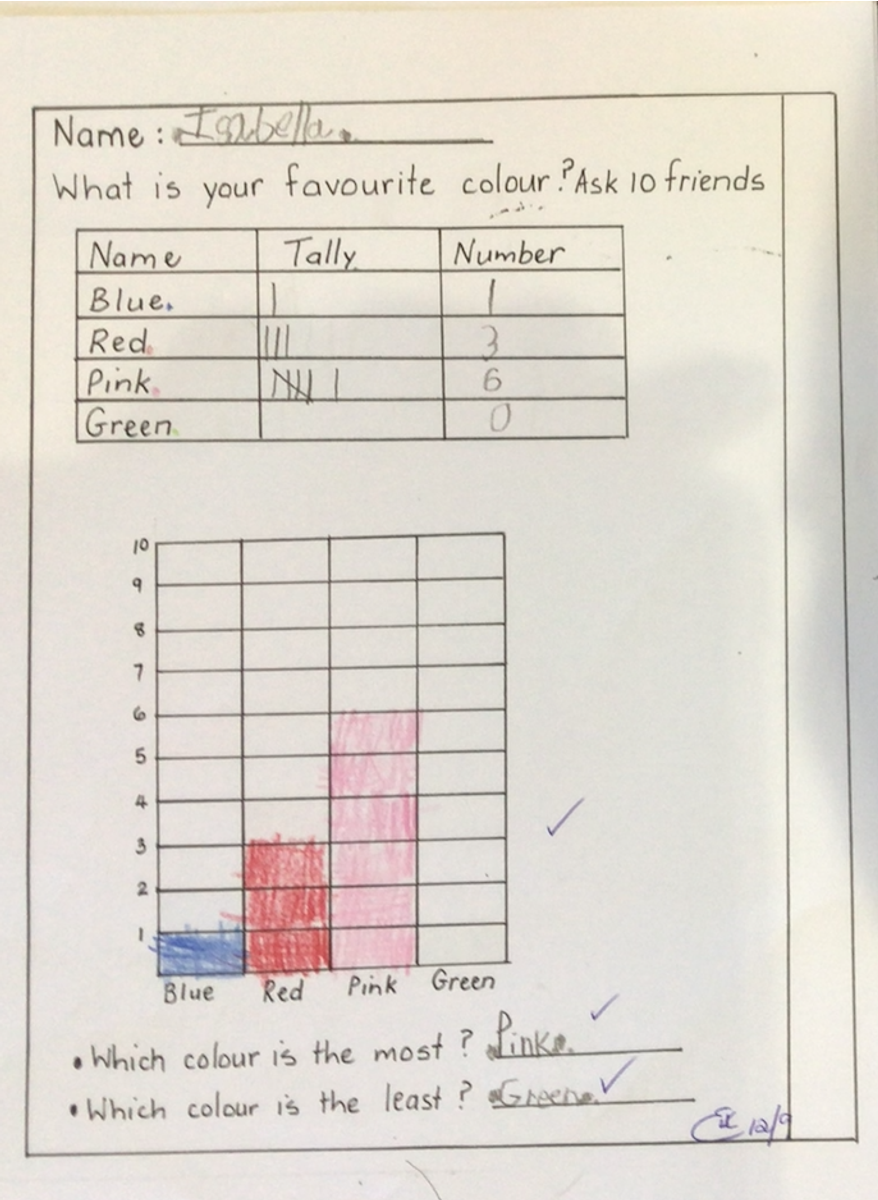 Name : Isabella.
What is your favourite colour? Ask 10 friends
Name Tally Number
Blue. | 1
Red. ||| 3
Pink. 6
Green. 0
10
9
8
7
6
5
4
3
2
1
Blue Red Pink Green
• Which colour is the most? Pink.
• Which colour is the least? Green.
12/9